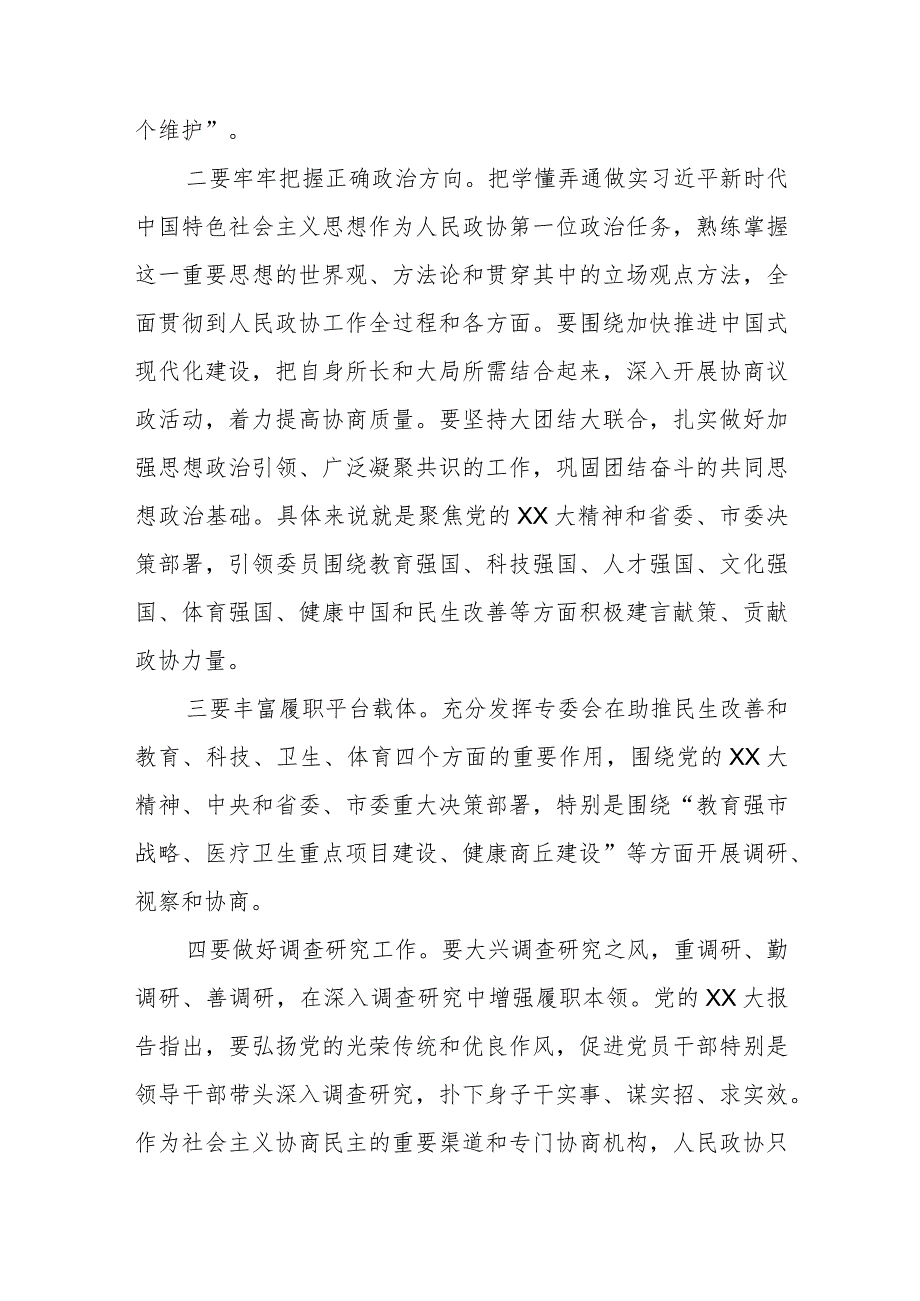 个维护”。
二要牢牢把握正确政治方向。把学懂弄通做实习近平新时代
中国特色社会主义思想作为人民政协第一位政治任务，熟练掌握
这一重要思想的世界观、方法论和贯穿其中的立场观点方法，全
面贯彻到人民政协工作全过程和各方面。要围绕加快推进中国式
现代化建设，把自身所长和大局所需结合起来，深入开展协商议
政活动，着力提高协商质量。要坚持大团结大联合，扎实做好加
强思想政治引领、广泛凝聚共识的工作，巩固团结奋斗的共同思
想政治基础。具体来说就是聚焦党的XX大精神和省委、市委决
策部署，引领委员围绕教育强国、科技强国、人才强国、文化强
国、体育强国、健康中国和民生改善等方面积极建言献策、贡献
政协力量。
三要丰富履职平台载体。充分发挥专委会在助推民生改善和
教育、科技、卫生、体育四个方面的重要作用，围绕党的XX大
精神、中央和省委、市委重大决策部署，特别是围绕“教育强市
战略、医疗卫生重点项目建设、健康商丘建设”等方面开展调研、
视察和协商。
四要做好调查研究工作。要大兴调查研究之风，重调研、勤
调研、善调研，在深入调查研究中增强履职本领。党的XX大报
告指出，要弘扬党的光荣传统和优良作风，促进党员干部特别是
领导干部带头深入调查研究，扑下身子干实事、谋实招、求实效。
作为社会主义协商民主的重要渠道和专门协商机构，人民政协只